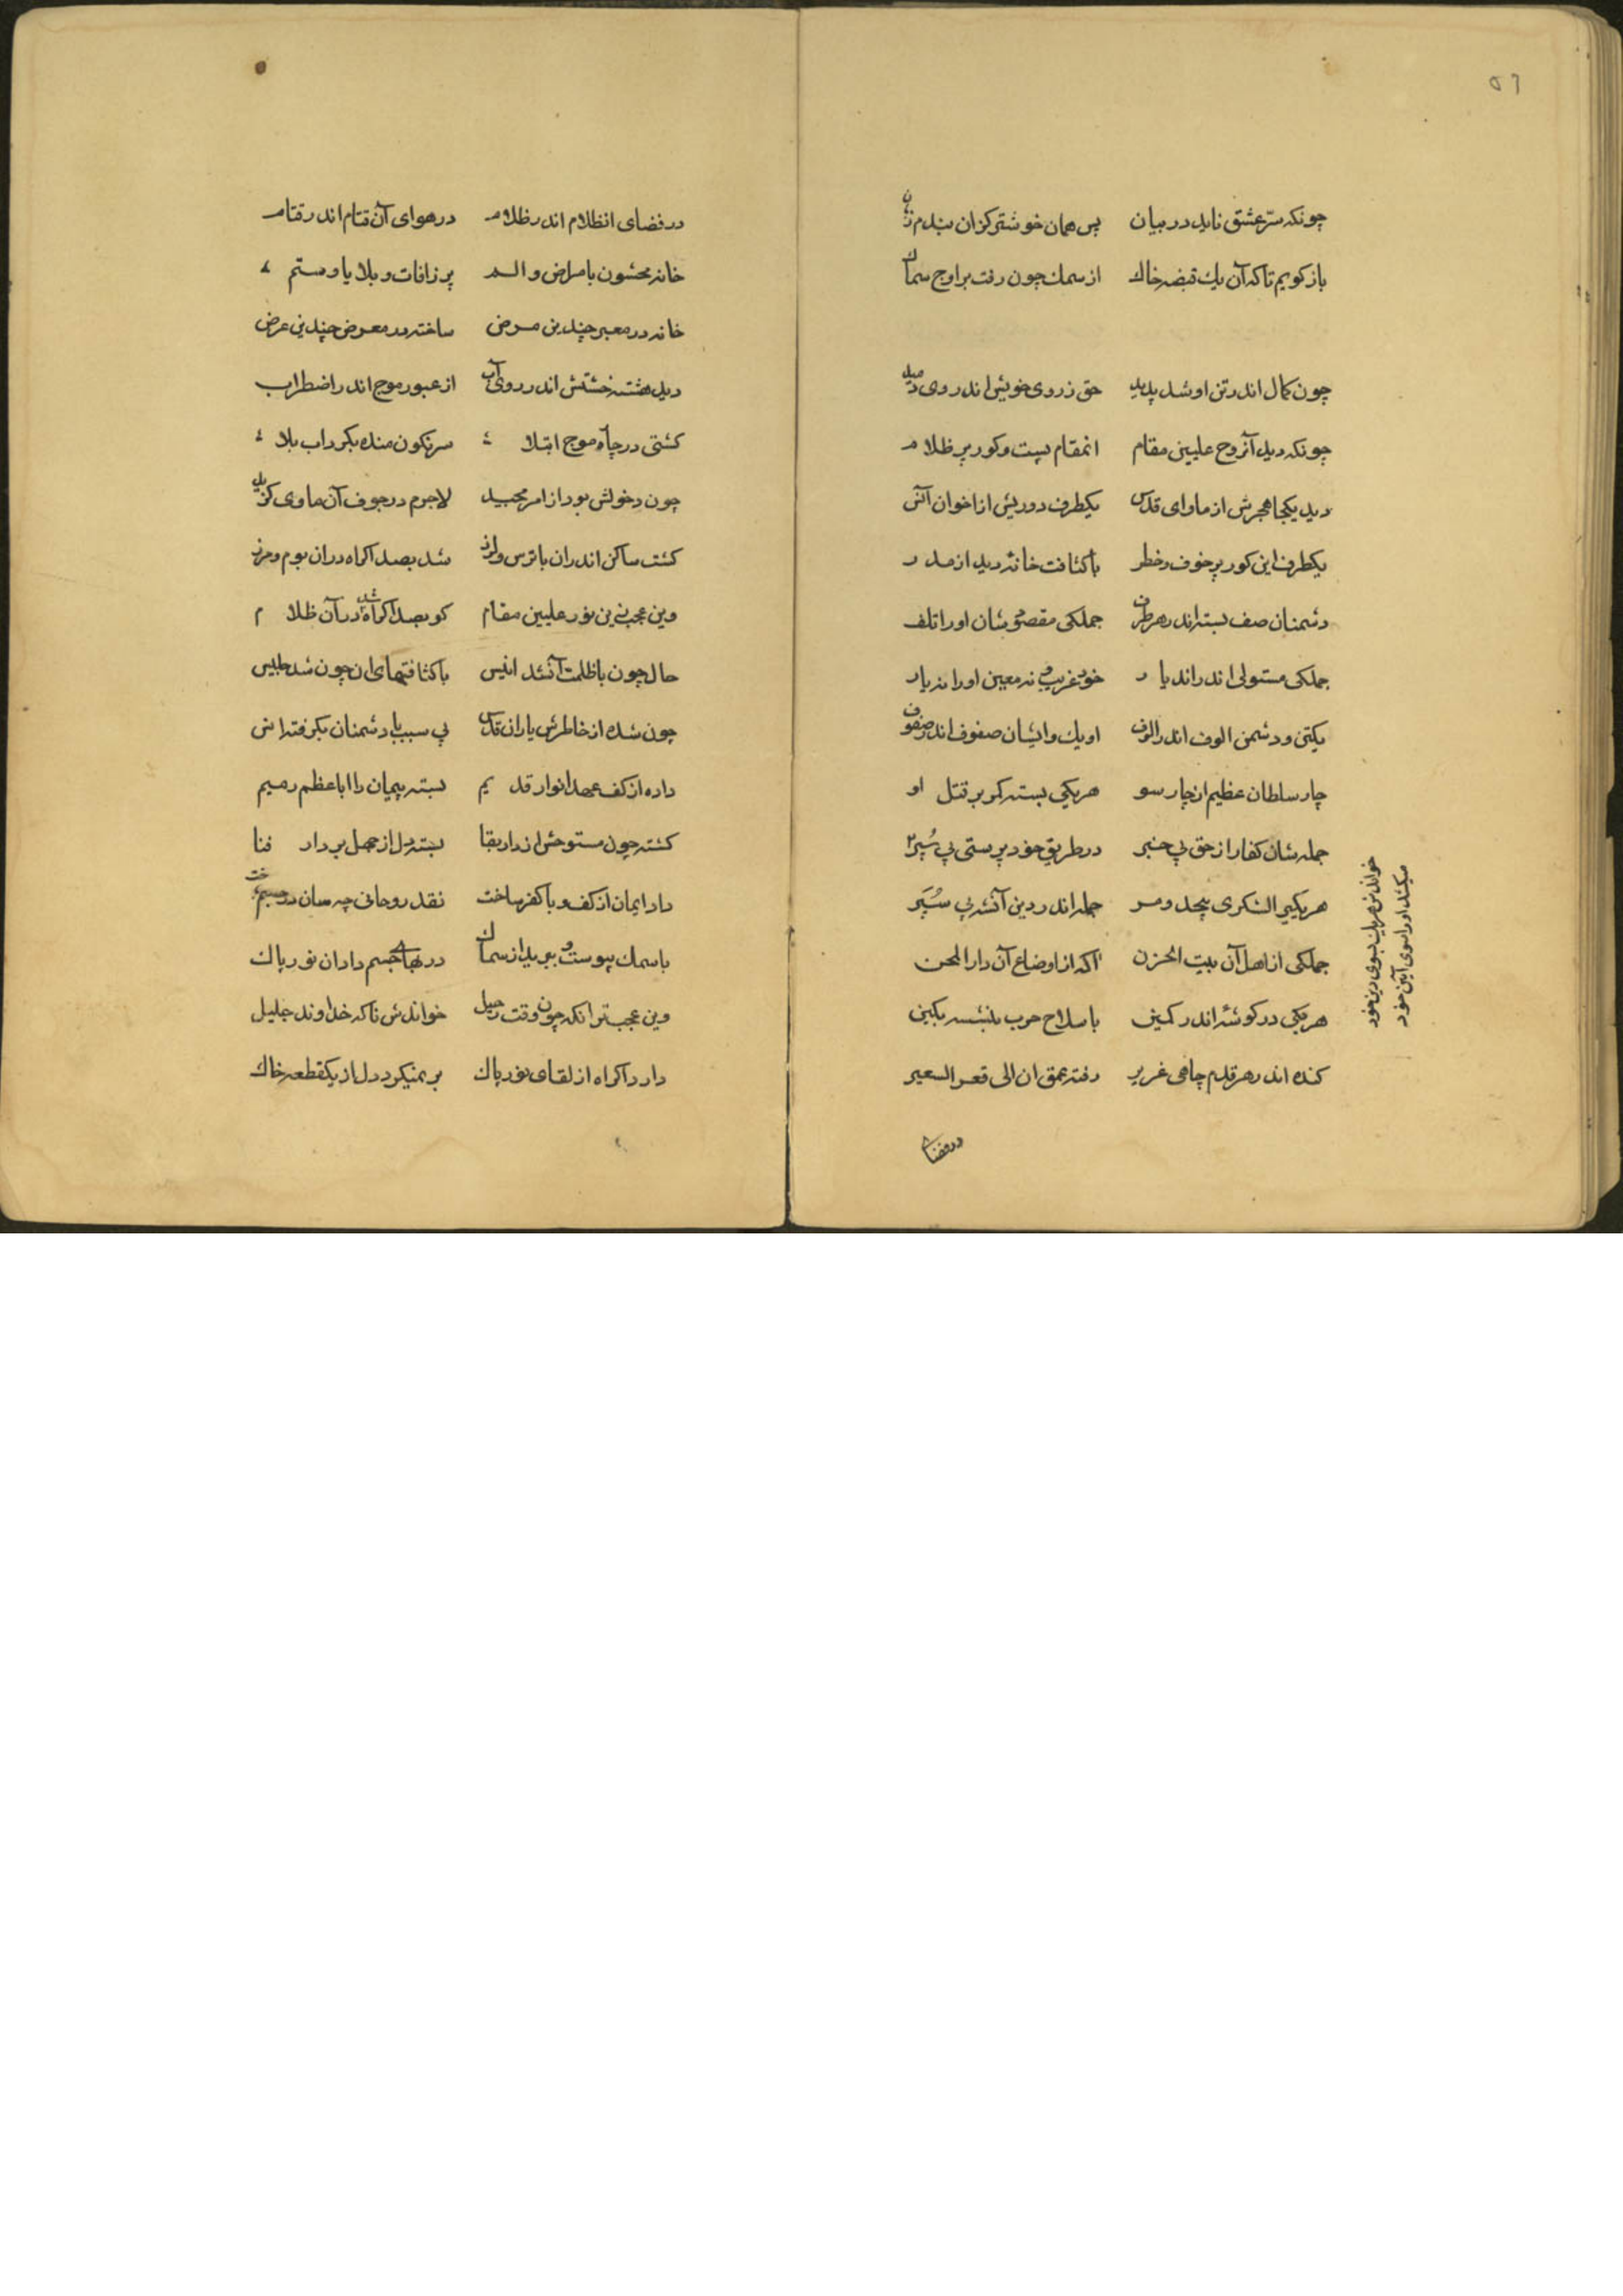 ٥٦
چونکه سرّ عشق ناید در بیان پس همان خوشتر کزان بندم زبان
باز کویم تا که آن یك قبضه خاك از سمك چون رفت بر اوج سماك
چون کمال اندر تن او شد پدید حق ز روی خویش اندر وی دمید
چونکه دید آنروح علیین مقام انمقام پست و کور پر ظلام
دید یکجا هجرش از ماوای قدس یکطرف دوریش از اخوان آنس
یکطرف این کور پر خوف و خطر با کثافت خانهٔ دید از مدر
دشمنان صف بسته اند رهر طرف جملکی مقصودشان او را تلف
جملکی مستولی اندر اندیار خود غریب و نه معین او را نه یار
یکتن و دشمن الوف اندر الوف او یك و ایشان صفوف اندر صفوف
چار سلطان عظیم از چار سو هر یکی بسته کمر بر قتل او
جمله شان کفار از حق بی خبر در طریق خود پرستی پی سُپر
هر یکی را لشکری بیحد و مر جمله اندر دین آنشه پی سُپَر
خواندش هر یك بسوی دین خود
میکشد او را سوی آیین خود
جملکی از اهل آن بیت الحزن آکه از اوضاع آن دار المحن
هر یکی در کوشهٔ اندر کمین با سلاح حرب بنشسته بکین
کنده اند رهر قدم چاهی غریر رفته عمق ان الی قعر السعیر
در فضای
در فضای انظلام اندر ظلام در هوای آن قتام اندر قتام
خانه محشون بامراض و الم پر ز افات و بلایا و ستم
خانه در معبر چندین مرض ساخته در معرض چندین عرض
دید هشته خشتش اندر روی آب از عبور موج اند راضطراب
کشتی در چاه موج ابتلا سرنکون منده بکرداب بلا
چون دخولش بود از امر مجید لاجرم در جوف آن ماوی کزید
کشت ساکن اندران با ترس و لرز شد بصد اکراه دران بوم و مرز
وین عجب بین نور علیین مقام کو بصد اکراه شد در آن ظلام
حال چون با ظلمت آنشد انیس با کثافتهای ان چون شد جلیس
چون شده از خاطرش یاران قدس بی سبب با دشمنان بکرفته انس
داده از کف عهد انوار قدیم بسته پیمان را با عظم رمیم
کشته چون مستوحش از دار بقا بسته دل از جهل بر دار فنا
داد ایمان از کف و با کفر ساخت نقد روحانی چه سان در جسم باخت
با سمك پیوست و ببرید از سماك در بهای جسم داد ان نور پاك
وین عجبتر انکه چون وقت رحیل خواندش ناکه خداوند جلیل
دارد اکراه از لقای نور پاك بر نمیکرد دل از یکقطعه خاك